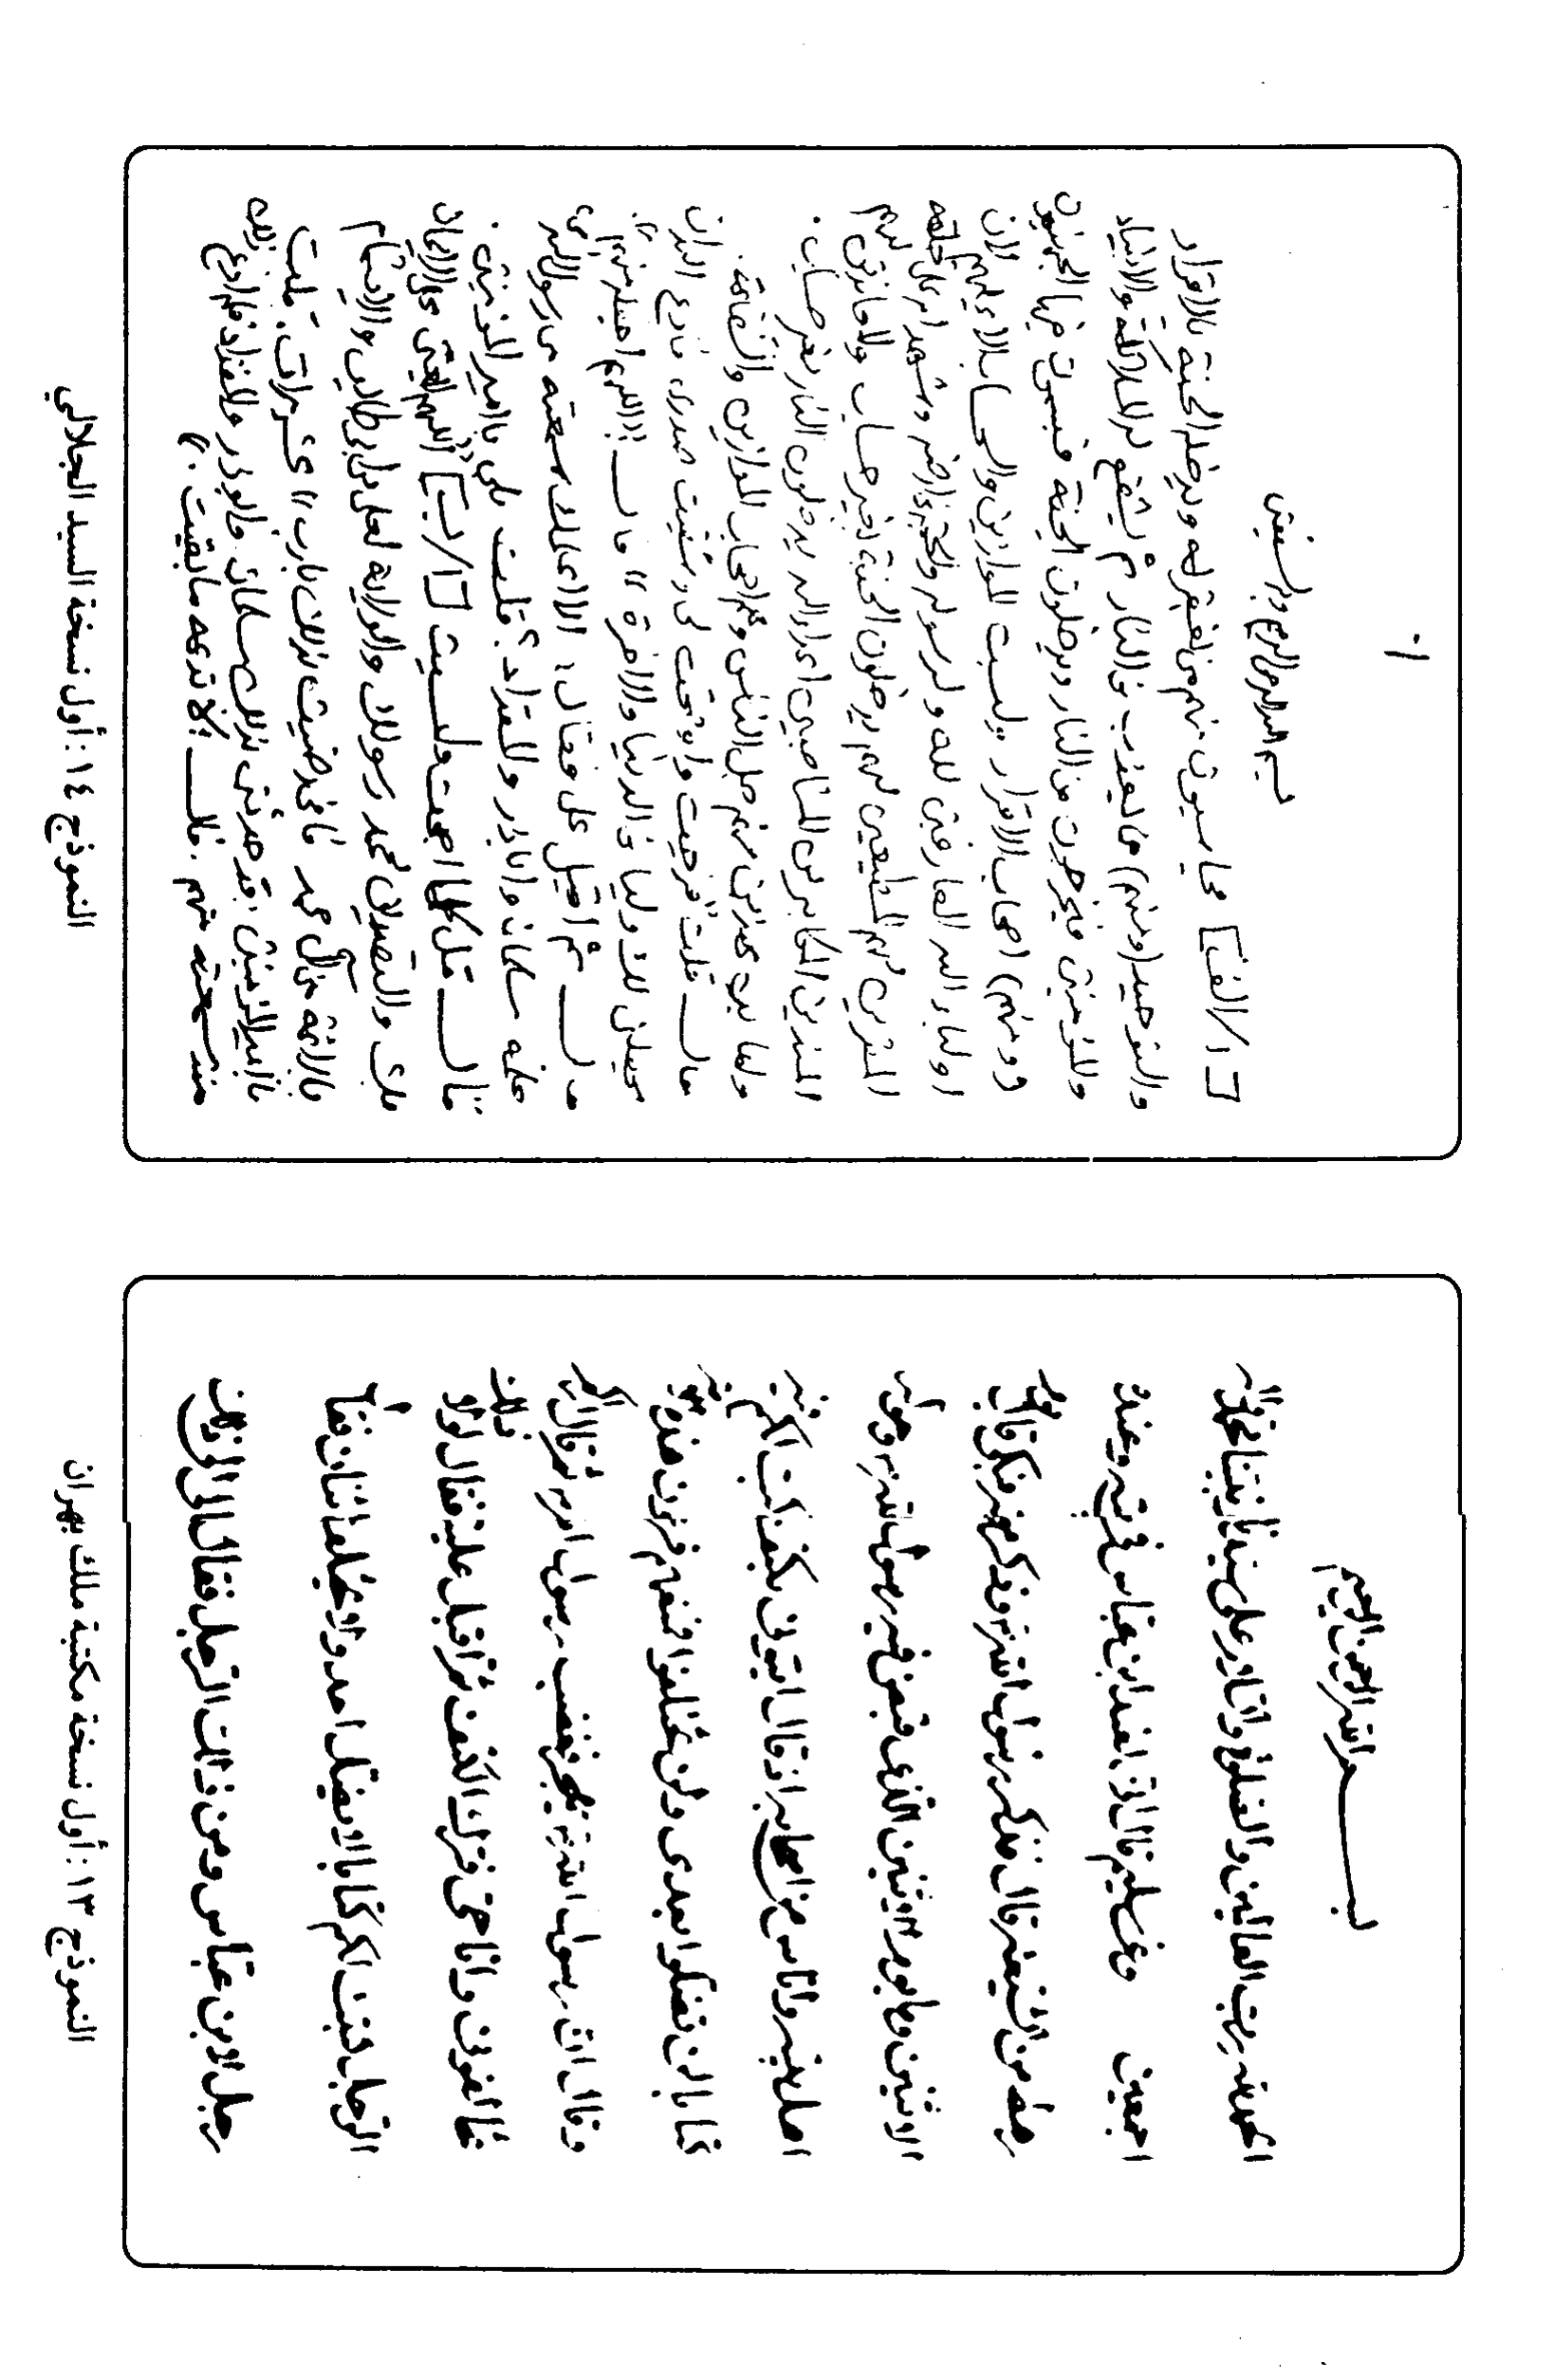 بسم الله الرحمن الرحيم
الحمد لله رب العالمين والصلوة والسلام على سيدنا ونبينا محمد وآله
اجمعين وعن سليم قال انى عند ابن عباس فى بيته وعنده
رهط من الشيعة قال فذكر رسول الله وذكر موته فبكى قال
الاثنين وهو يوم الاثنين الذى قبض فيه رسول الله وحوله
اهل بيته واناس من اصحابه اذ قال ايتونى بكتف اكتب لكم فيه
كتابا لن تضلوا بعدى ولن تختلفوا فمنعهم فرعون هذه
وقال ان رسول الله يهجر فغضب رسول الله ثم قال انى
تخالفونى وانا حى فترك الكتف ثم اقبل عليه فقال لولا
الرجل لكتبت لكم كتابا لا يضل احد ولا يختلف اثنان فقال
رجل لابن عباس ومن ذلك الرجل فقال الى ذلك
النموذج ١٣: أول نسخة مكتبة ملك بهران
١
بسم الله الرحمن الرحيم وبه نستعين
[١/الف] محاسبون منهم من يغفر له ويدخله الجنة بالاقرار
والتوحيد (ومنهم) من يعذب فى النار ثم يشفع له الملائكة والانبياء
والمؤمنين فيخرجون من النار ويدخلون الجنة فيسمون فيها الجهنميون
(ومنهم) اصحاب الاقرار وليست الموازين والحساب الا عليهم لان
اولياء الله العارفين لله ولرسوله والحجة فى ارضه وشهدائه على خلقه
المقرين لهم المطيعين لهم يدخلون الجنة بغير حساب
المنذرين المكابرين المناصبين اعداء الله يدخلون النار بغير حساب.
واما بين هذين منهم جل الناس وهم اصحاب الموازين والشفاعة.
قال قلت: فرجت واوضحت لى وشفيت صدرى فادع الله ان
يجعلنى لك وليا فى الدنيا والآخرة» قال: «اللهم اجعله منهم».
قال ثم اقبل على فقال: الا اعلمك سمعته من رسول الله
علمه سلمان وابا ذر والمقداد؟ قلت بلى يا امير المؤمنين.
قال: قل كلما اصبحت وامسيت [١/ب] «اللهم ابعثنى على الايمان
بك والتصديق بمحمد رسولك والولاية لعلى بن ابى طالب والايتمام
بالائمة من آل محمد فانى رضيت بذلك يارب» عشر مرات. قلت
يا امير المؤمنين: قد حدثنى بذلك سلمان وابوذر والمقداد فلم ادع ذلك
منذ سمعته منهم. قال: لا تدعه ما بقيت.»
النموذج ١٤: أول نسخة السيد الجلالي